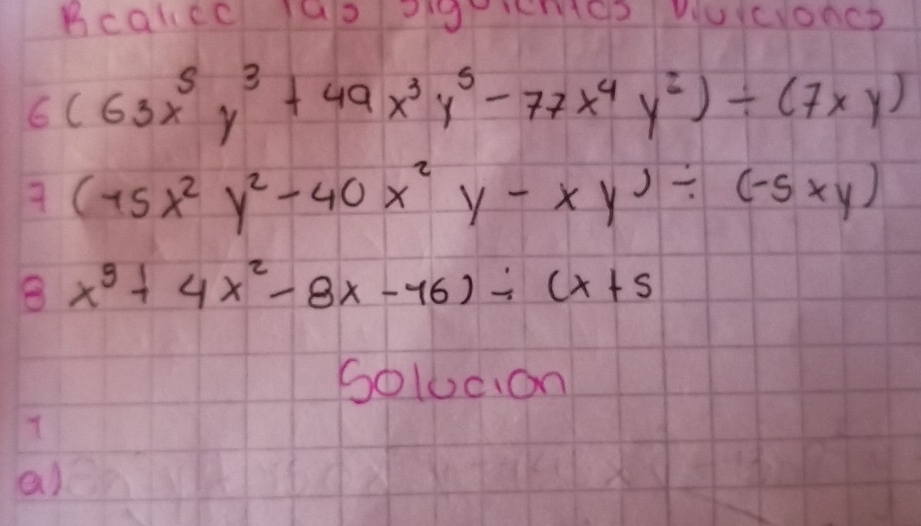 Realice las siguientes Divisiones
6 (63x⁵ y³ + 49 x³ y⁵ - 77x⁴ y²) ÷ (7xy)
7 (15x² y² - 40 x² y - xy) ÷ (-5xy)
8 x³ + 4x² - 8x - 16) ÷ (x + 5
Solucion
1
a)